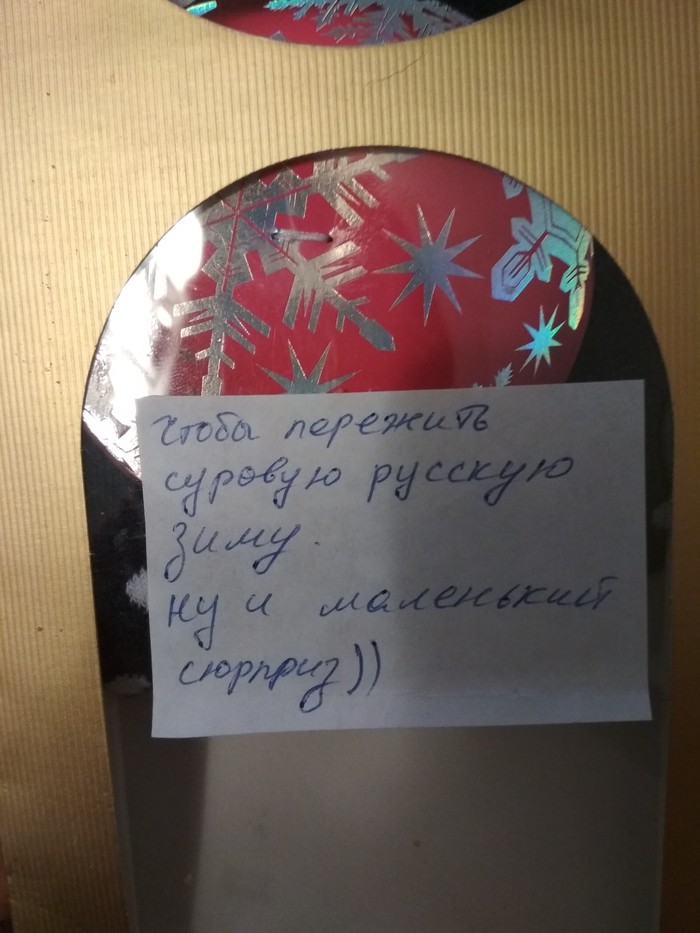 Чтобы пережить
суровую русскую
зиму.
ну и маленький
сюрприз))